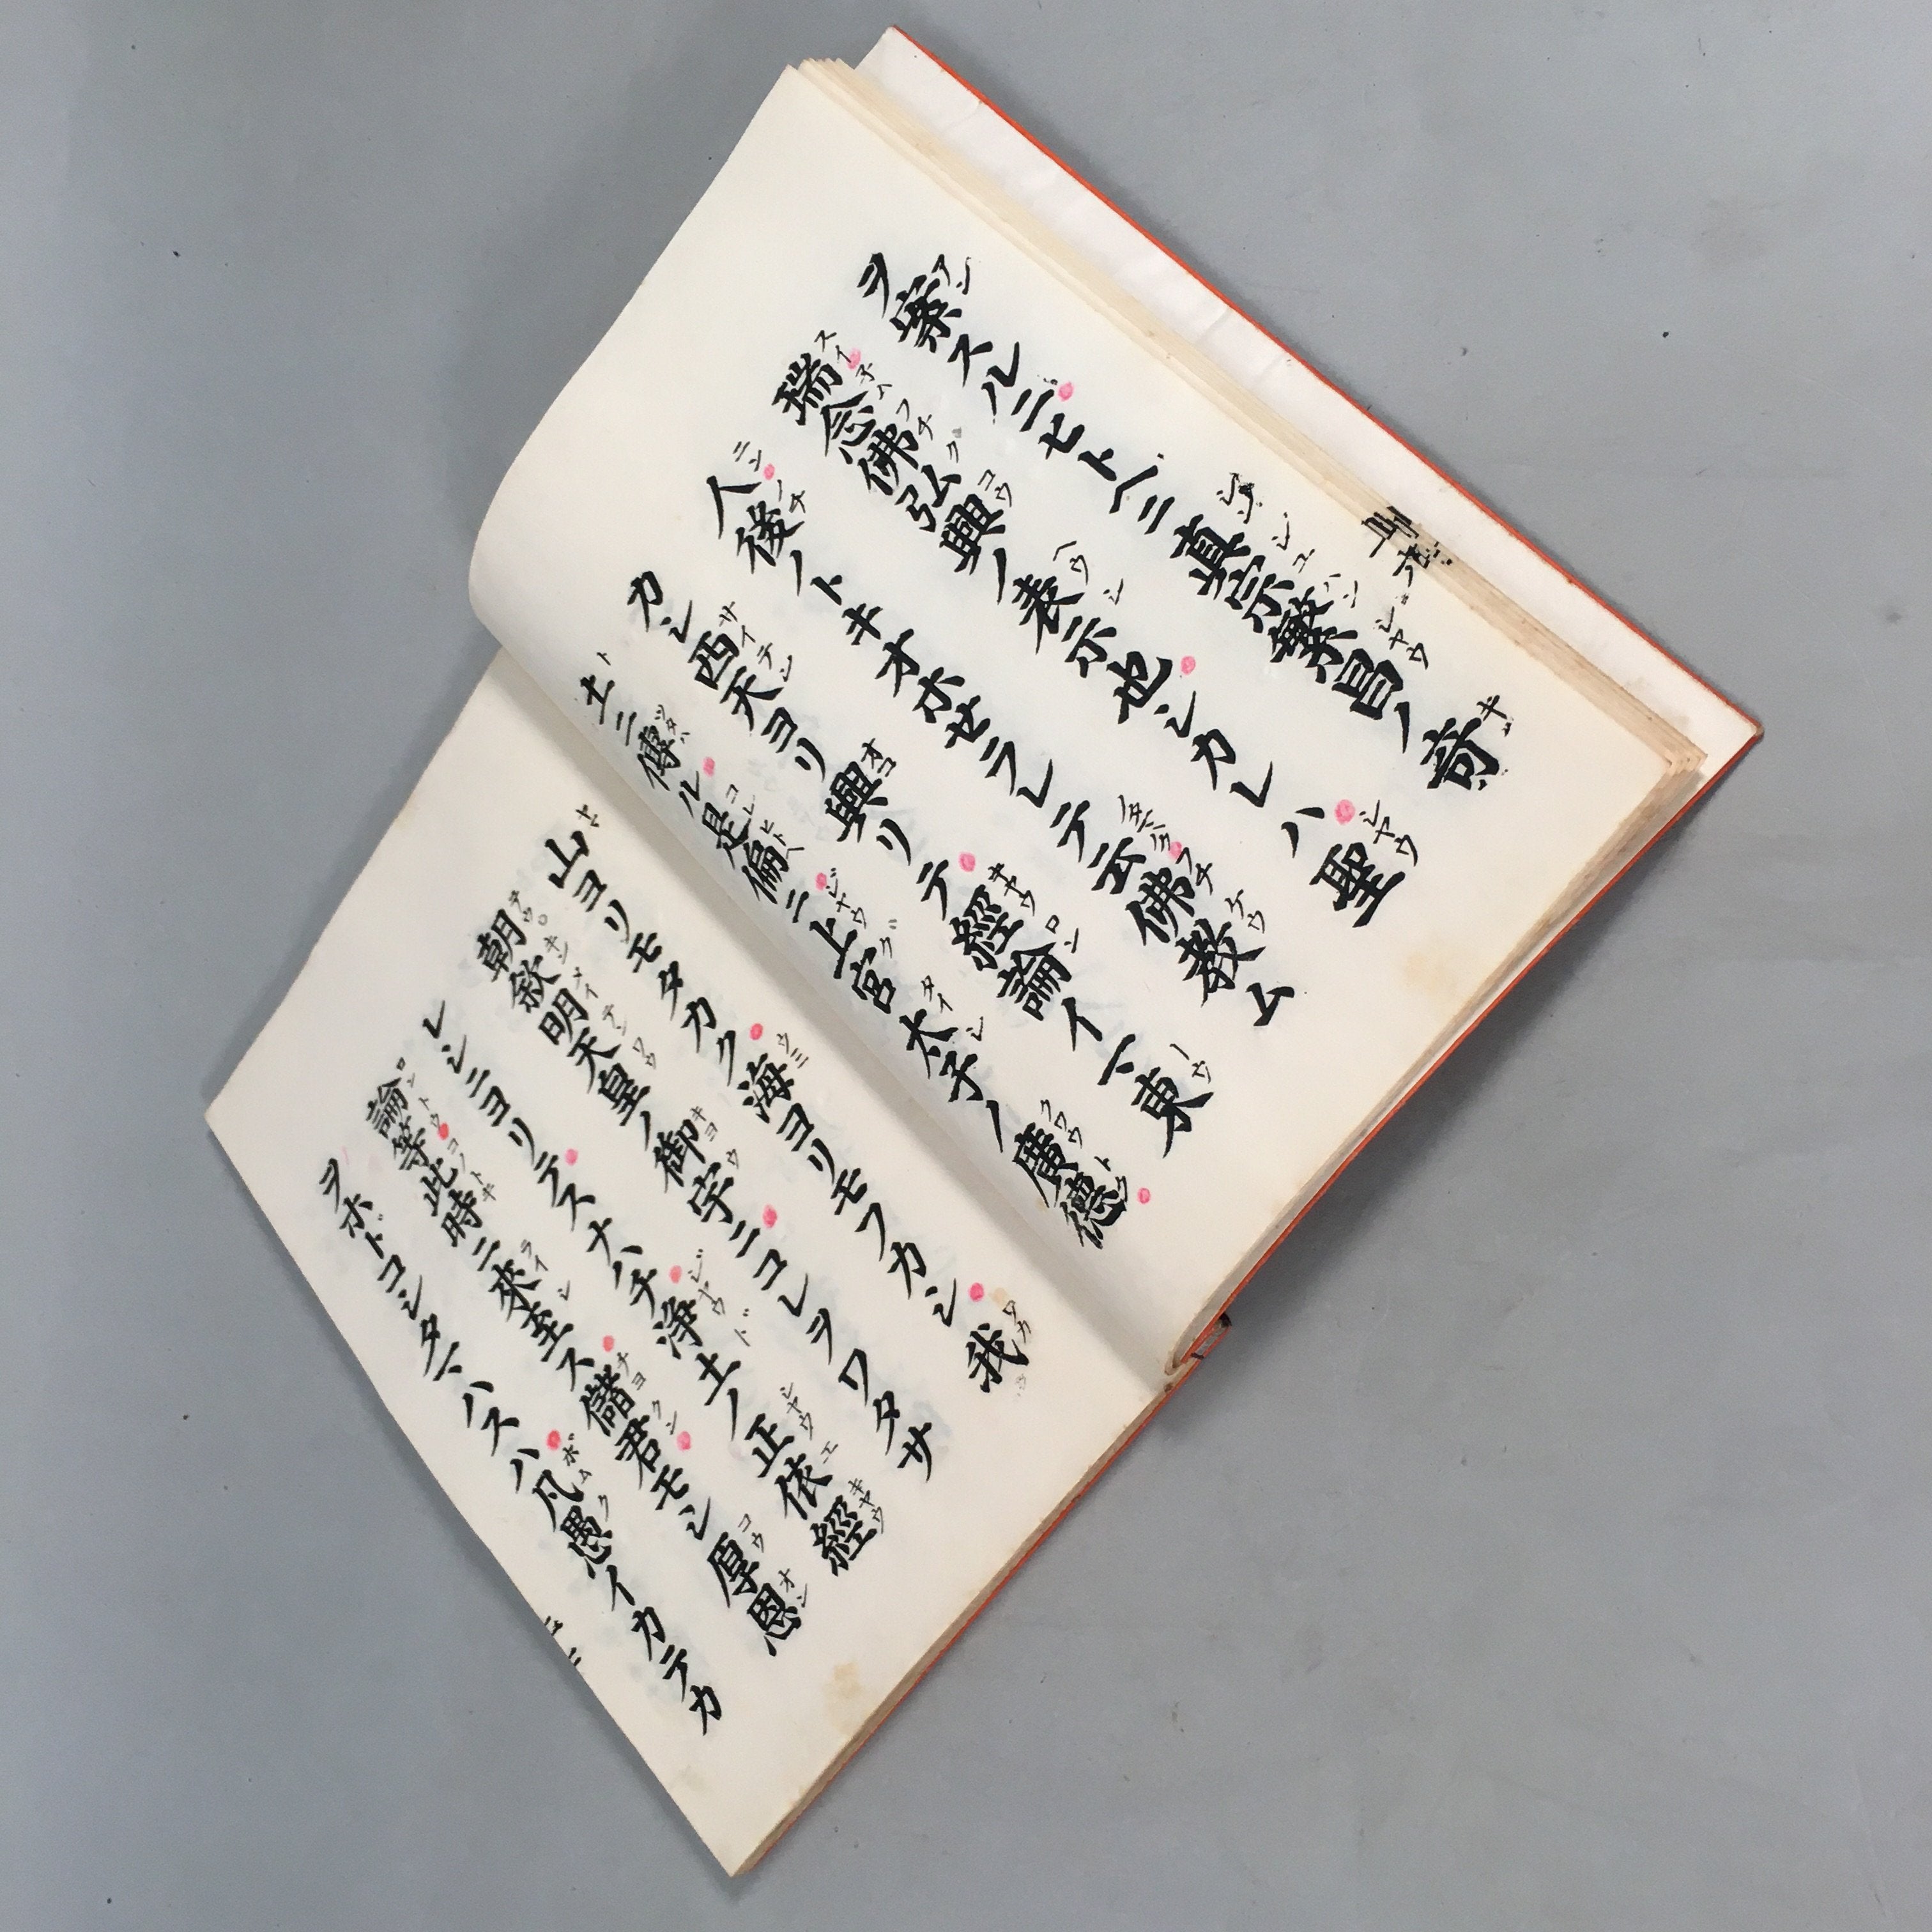 ヲ案スルニヒトヘニ真宗繁昌ノ奇
瑞念佛弘興ノ表示也シカレハ聖
人後ノトキオホセラレテ云佛教ム
カシ西天ヨリ興リテ經論イマ東
土ニ傳ル是偏ニ上宮太子ノ廣德
山ヨリモタカク海ヨリモフカシ我
朝欽明天皇ノ御宇ニコレラワタサ
レシニヨリテスナハチ浄土ノ正依經
論等此時ニ來至ス儲君モシ厚恩
ヲホドコシタマハスハ凡愚イカテカ